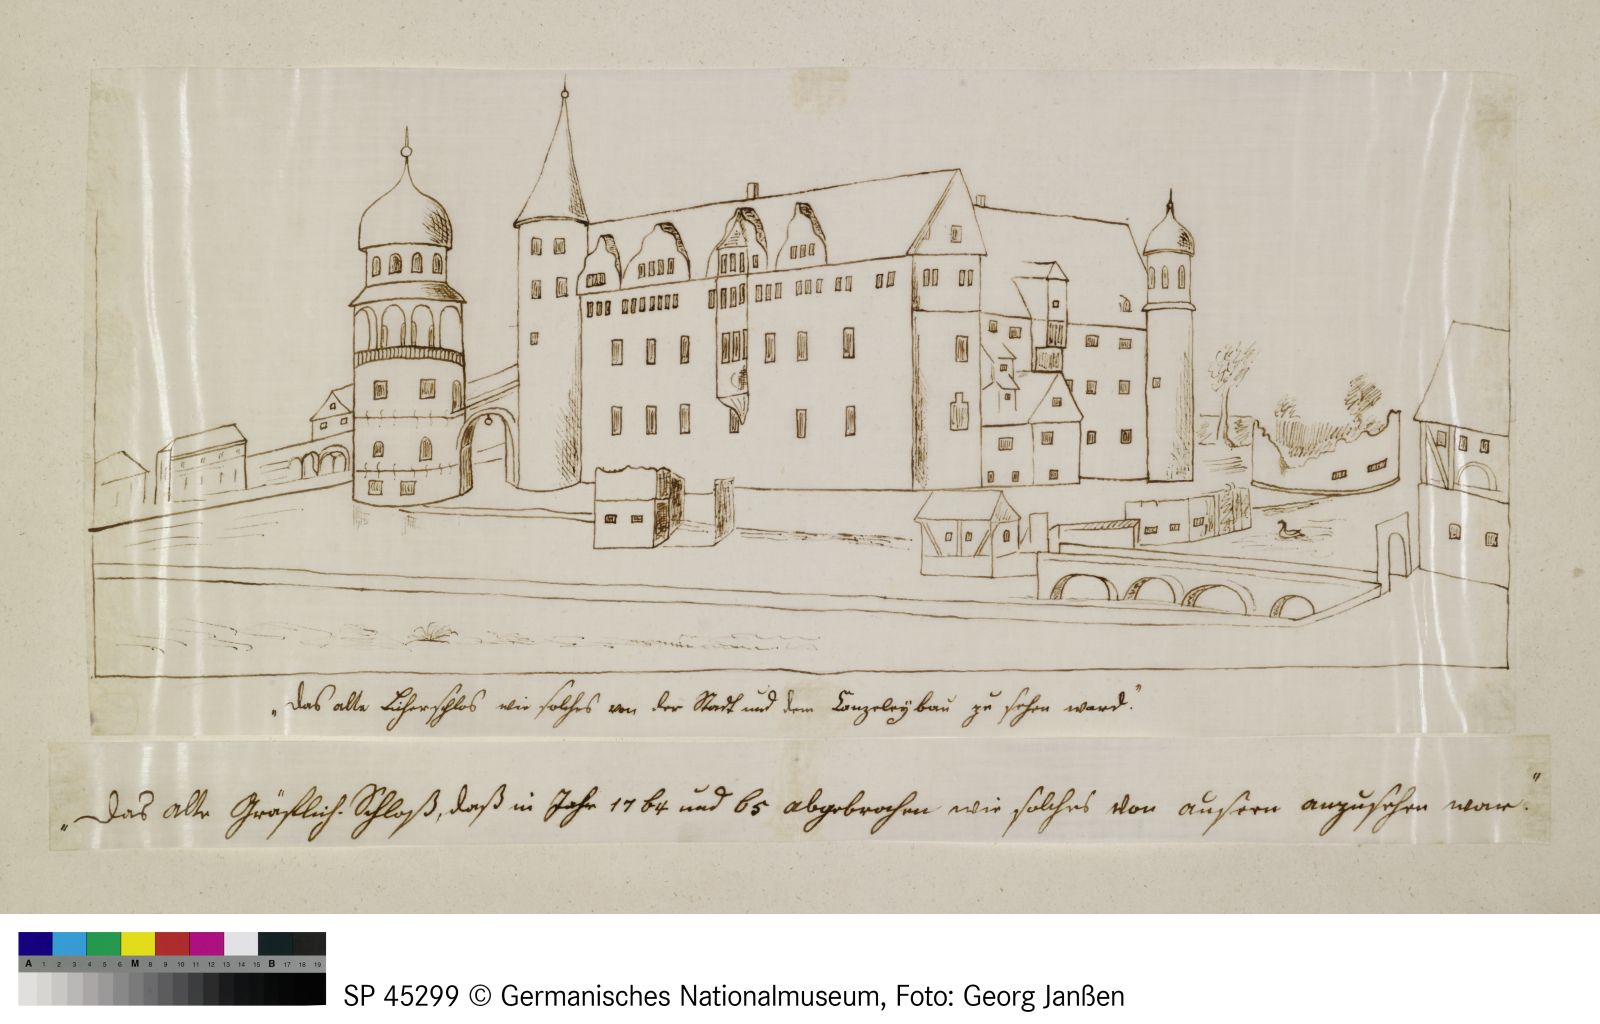 „Das alte Licherschlos wie solches von der Stadt und dem Canzeleÿbau zu sehen ward.“
„Das alte Gräflich. Schloß, daß in Jahr 1764 und 65 abgebrochen wie solches von ausern anzusehen war.“
A 1 2 3 4 5 6 M 8 9 10 11 12 13 14 15 B 17 18 19
SP 45299 © Germanisches Nationalmuseum, Foto: Georg Janßen